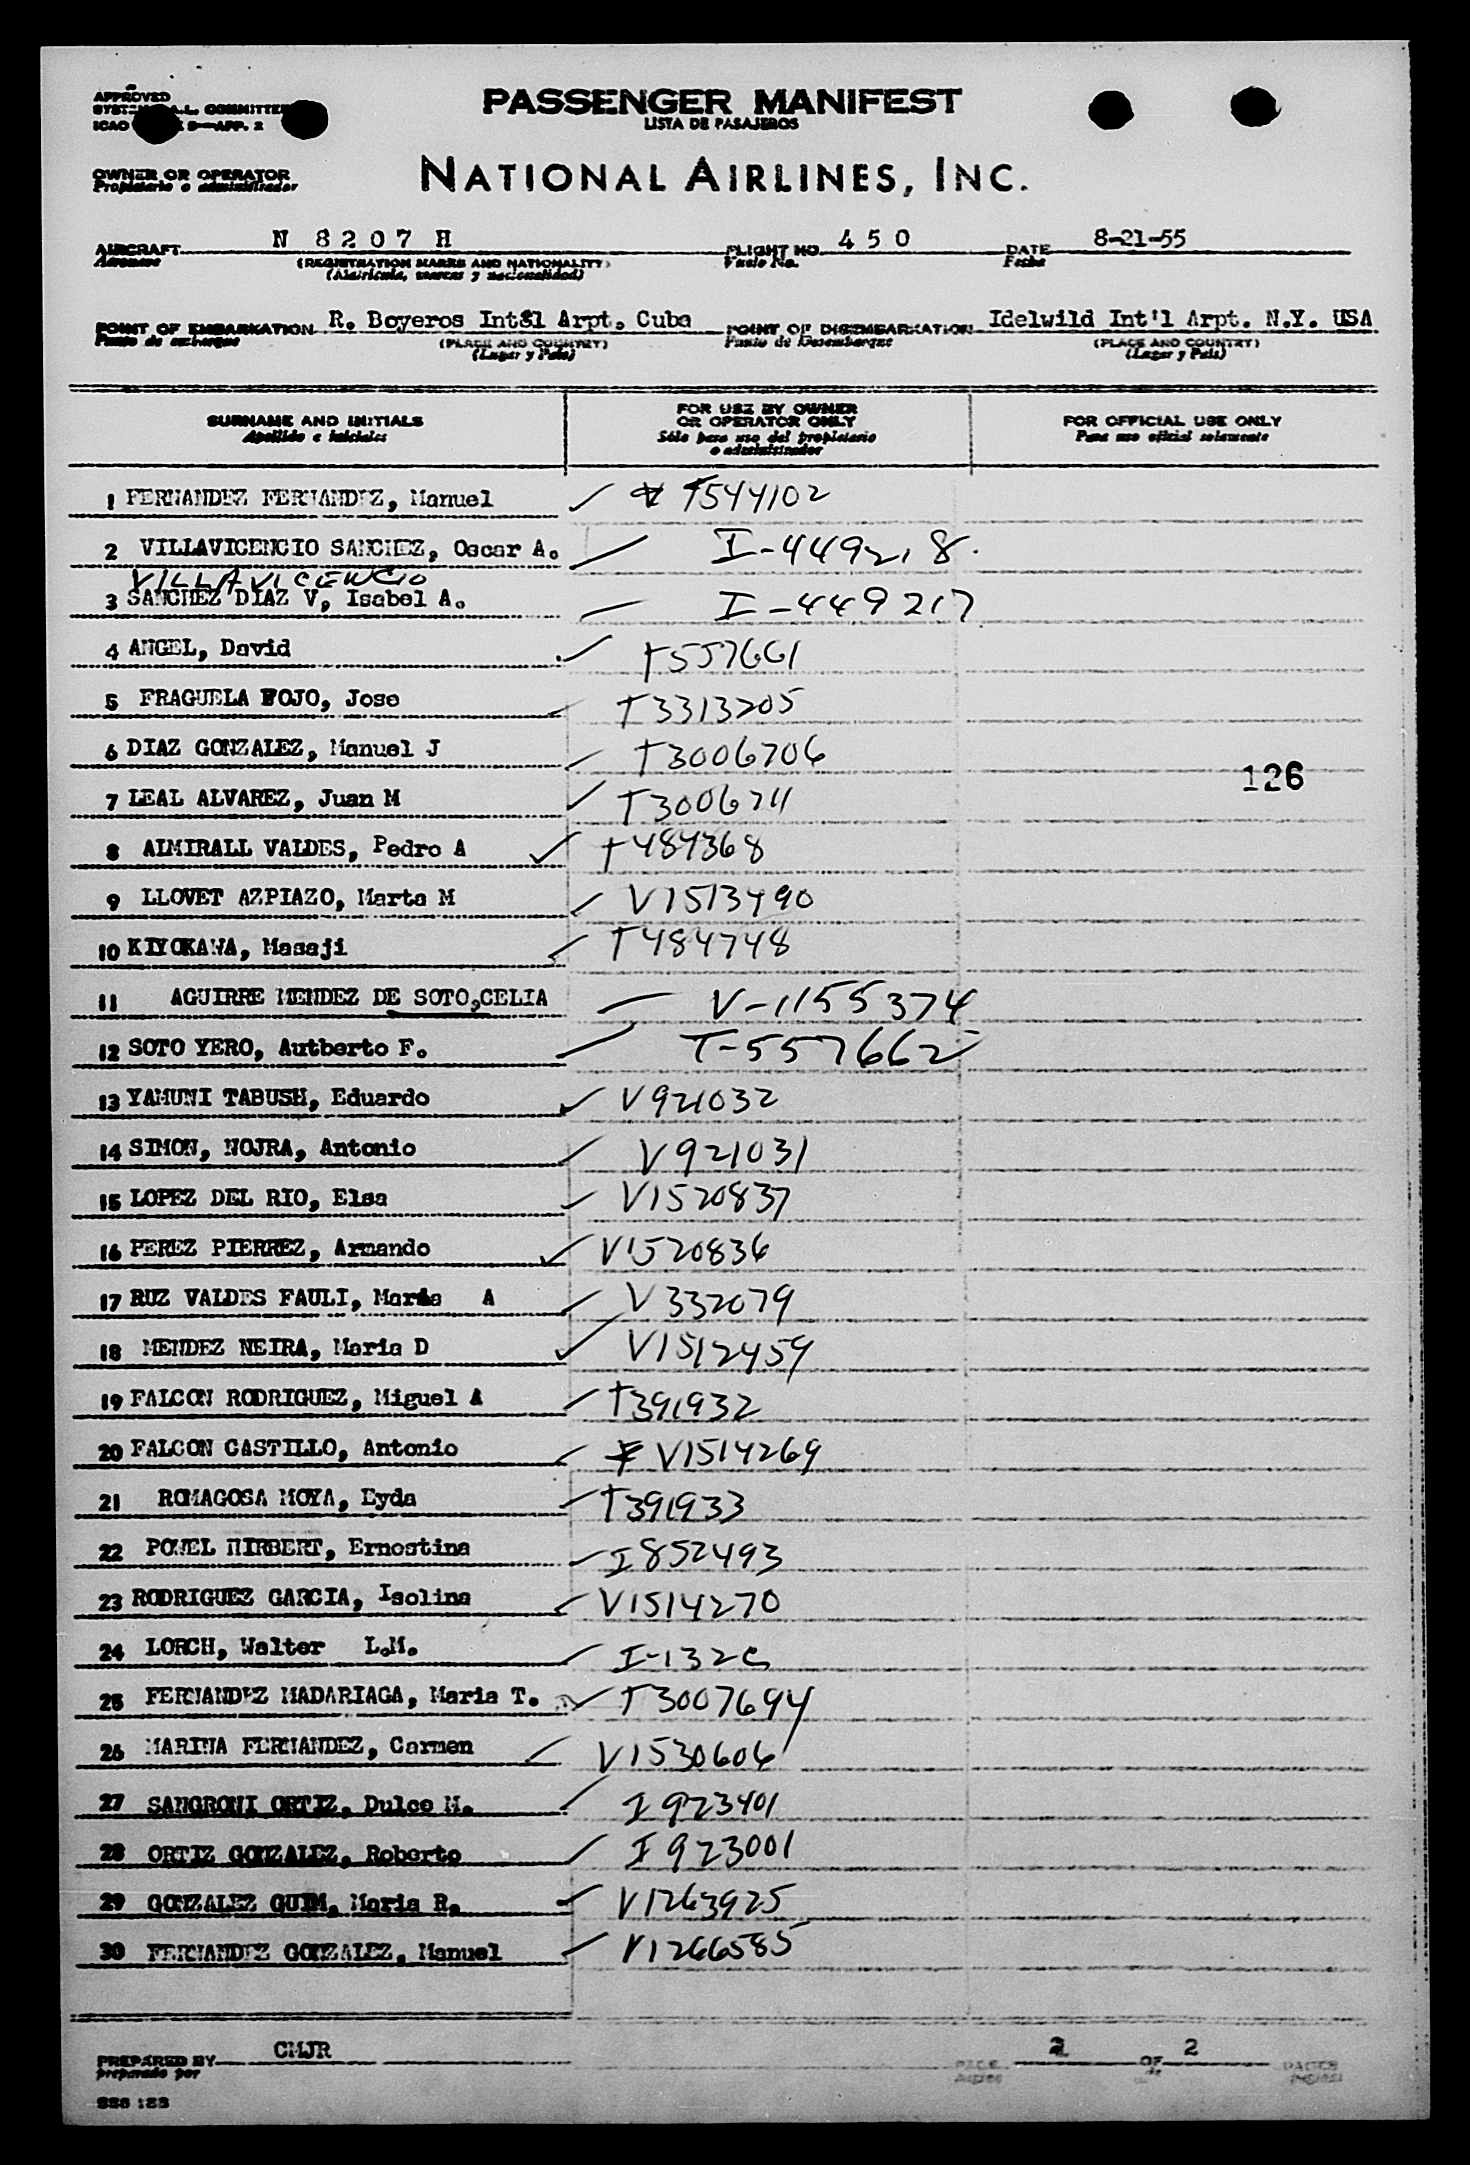 APPROVED
COMMITTEE
ICAO APP. 2
PASSENGER MANIFEST
LISTA DE PASAJEROS
OWNER OR OPERATOR
Propietario o administrador
NATIONAL AIRLINES, INC.
AIRCRAFT N 8207 H FLIGHT NO. 450 DATE 8-21-55
Aeronave (REGISTRATION MARKS AND NATIONALITY) Vuelo No. Fecha
(Matricula, marcas y nacionalidad)
POINT OF EMBARKATION R. Boyeros Int&l Arpt. Cuba POINT OF DISEMBARKATION Idelwild Int'l Arpt. N.Y. USA
Punto de embarque (PLACE AND COUNTRY) Punto de Desembarque (PLACE AND COUNTRY)
(Lugar y Pais) (Lugar y Pais)
SURNAME AND INITIALS FOR USE BY OWNER OR OPERATOR ONLY FOR OFFICIAL USE ONLY
Apellido e iniciales Sólo para uso del propietario o administrador Para uso oficial solamente
1 FERNANDEZ FERNANDEZ, Manuel T544102
2 VILLAVICENCIO SANCHEZ, Oscar A. I-449218
VILLAVICENCIO
3 SANCHEZ DIAZ V, Isabel A. I-449217
4 ANGEL, David T557661
5 FRAGUELA FOJO, Jose T3313205
6 DIAZ GONZALEZ, Manuel J T3006706
126
7 LEAL ALVAREZ, Juan M T3006711
8 ALMIRALL VALDES, Pedro A T484368
9 LLOVET AZPIAZO, Marta M V1513490
10 KIYOKAWA, Masaji T484748
11 AGUIRRE MENDEZ DE SOTO,CELIA V-1155374
12 SOTO YERO, Autberto F. T-557662
13 YAMUNI TABUSH, Eduardo V921032
14 SIMON, NOJRA, Antonio V921031
15 LOPEZ DEL RIO, Elsa V1520837
16 PEREZ PIERREZ, Armando V1520836
17 RUZ VALDES FAULI, Maria A V332079
18 MENDEZ NEIRA, Maria D V1512459
19 FALCON RODRIGUEZ, Miguel A T391932
20 FALCON CASTILLO, Antonio V1514269
21 ROMAGOSA MOYA, Eyda T391933
22 POWEL HIRBERT, Ernestina I852493
23 RODRIGUEZ GARCIA, Isolina V1514270
24 LORCH, Walter L.M. I-132
25 FERNANDEZ MADARIAGA, Maria T. T3007694
26 MARINA FERNANDEZ, Carmen V1530606
27 SANGRONI ORTIZ, Dulce M. I923401
28 ORTIZ GONZALEZ, Roberto I923001
29 GONZALEZ GUIM, Maria R. V1263925
30 FERNANDEZ GONZALEZ, Manuel V1266585
PREPARED BY CMJR PAGE 2 OF 2 PAGES
preparado por de